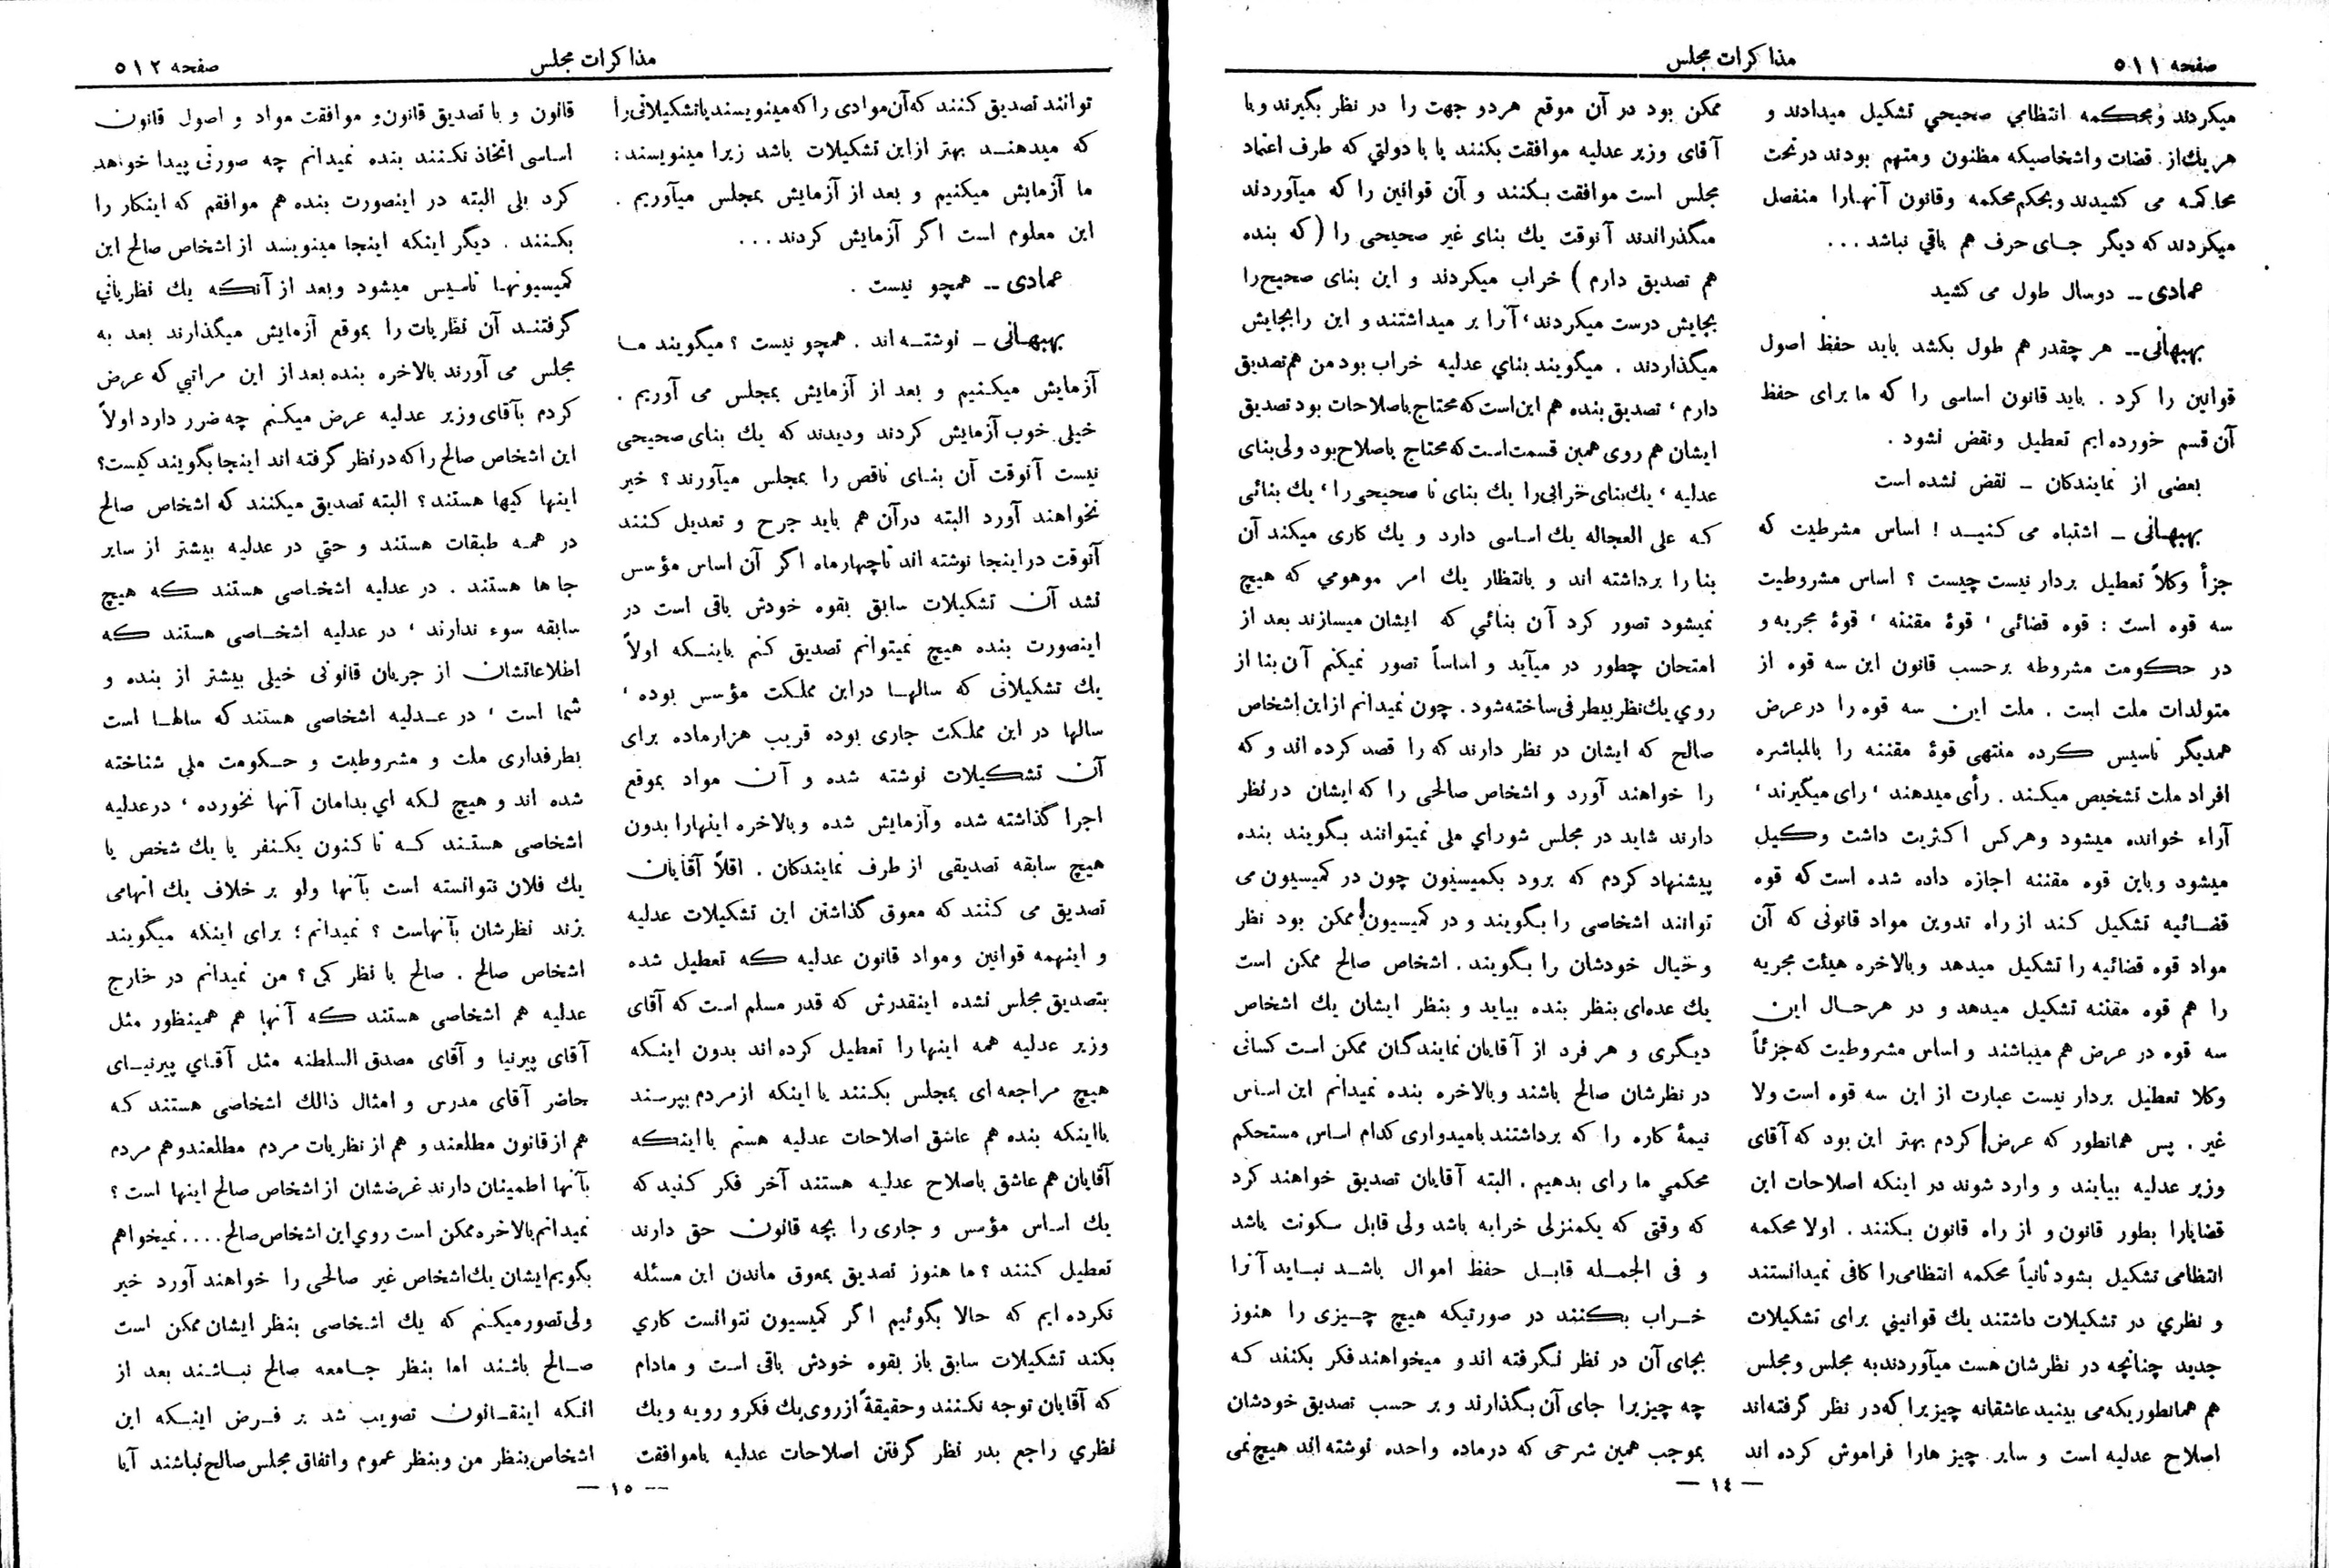 صفحه ۵۱۱
مذاکرات مجلس
میکردند ومحکمه انتظامی صحیحی تشکیل میدادند و
هریك از قضات و اشخاصیکه مظنون ومتهم بودند درتحت
محاکمه می کشیدند وبحکم محکمه وقانون آنهارا منفصل
میکردند که دیگر جای حرف هم باقی نباشد ...
عمادی ــ دوسال طول می کشید
بهبهانی ــ هر چقدر هم طول بکشد باید حفظ اصول
قوانین را کرد . باید قانون اساسی را که ما برای حفظ
آن قسم خورده ایم تعطیل ونقض نشود .
بعضی از نمایندکان ــ نقض نشده است
بهبهانی ــ اشتباه می کنید ! اساس مشرطیت که
جزأ وکلاً تعطیل بردار نیست چیست ؟ اساس مشروطیت
سه قوه است : قوه قضائی ، قوهٔ مقننه ، قوهٔ مجریه و
در حکومت مشروطه برحسب قانون این سه قوه از
متولدات ملت است . ملت این سه قوه را درعرض
همدیگر تاسیس کرده منتهی قوهٔ مقننه را بالمباشره
افراد ملت تشخیص میکند . رأی میدهند ، رای میگیرند ،
آراء خوانده میشود وهرکس اکثریت داشت وکیل
میشود وباین قوه مقننه اجازه داده شده است که قوه
قضائیه تشکیل کند از راه تدوین مواد قانونی که آن
مواد قوه قضائیه را تشکیل میدهد وبالاخره هیئت مجریه
را هم قوه مقننه تشکیل میدهد و در هرحال این
سه قوه در عرض هم میباشند و اساس مشروطیت که جزئاً
وکلا تعطیل بردار نیست عبارت از این سه قوه است ولا
غیر . پس همانطور که عرض کردم بهتر این بود که آقای
وزیر عدلیه بیایند و وارد شوند در اینکه اصلاحات این
قضایارا بطور قانون و از راه قانون بکنند . اولا محکمه
انتظامی تشکیل بشود ثانیاً محکمه انتظامی را کافی نمیدانستند
و نظری در تشکیلات داشتند یك قوانینی برای تشکیلات
جدید چنانچه در نظرشان هست میآوردند به مجلس ومجلس
هم همانطوریکه می بینید عاشقانه چیزیرا که در نظر گرفته اند
اصلاح عدلیه است و سایر چیز هارا فراموش کرده اند
ممکن بود در آن موقع هردو جهت را در نظر بگیرند وبا
آقای وزیر عدلیه موافقت بکنند یا با دولتی که طرف اعتماد
مجلس است موافقت بکنند و آن قوانین را که میآوردند
میگذراندند آنوقت یك بنای غیر صحیحی را (که بنده
هم تصدیق دارم ) خراب میکردند و این بنای صحیح را
بجایش درست میکردند ، آنرا بر میداشتند و این رابجایش
میگذاردند . میگویند بنای عدلیه خراب بود من هم تصدیق
دارم ، تصدیق بنده هم این است که محتاج باصلاحات بود تصدیق
ایشان هم روی همین قسمت است که محتاج باصلاح بود ولی بنای
عدلیه ، یك بنای خرابی را یك بنای نا صحیحی را ، یك بنائی
که علی العجاله یك اساسی دارد و یك کاری میکند آن
بنا را برداشته اند و بانتظار یك امر موهومی که هیچ
نمیشود تصور کرد آن بنائی که ایشان میسازند بعد از
امتحان چطور در میآید و اساساً تصور نمیکنم آن بنا از
روی یك نظر بیطرفی ساخته شود . چون نمیدانم از این اشخاص
صالح که ایشان در نظر دارند که را قصد کرده اند و که
را خواهند آورد و اشخاص صالحی را که ایشان در نظر
دارند شاید در مجلس شورای ملی نمیتوانند بگویند بنده
پیشنهاد کردم که برود بکمیسیون چون در کمیسیون می
توانند اشخاصی را بگویند و در کمیسیون ممکن بود نظر
و خیال خودشان را بگویند . اشخاص صالح ممکن است
یك عده ای بنظر بنده بیاید و بنظر ایشان یك اشخاص
دیگری و هر فرد از آقایان نمایندگان ممکن است کسانی
در نظرشان صالح باشند وبالاخره بنده نمیدانم این اساس
نیمهٔ کاره را که برداشتند بامیدواری کدام اساس مستحکم
محکمی ما رای بدهیم . البته آقایان تصدیق خواهند کرد
که وقتی که یکمنزلی خرابه باشد ولی قابل سکونت باشد
و فی الجمله قابل حفظ اموال باشد نباید آنرا
خراب بکنند در صورتیکه هیچ چیزی را هنوز
بجای آن در نظر نگرفته اند و میخواهند فکر بکنند که
چه چیزیرا جای آن بگذارند و بر حسب تصدیق خودشان
بموجب همین شرحی که درماده واحده نوشته اند هیچ نمی
— ١٤ —
مذاکرات مجلس
صفحه ۵۱۲
توانند تصدیق کنند که آن موادی را که مینویسند یا تشکیلاتی را
که میدهند بهتر از این تشکیلات باشد زیرا مینویسند :
ما آزمایش میکنیم و بعد از آزمایش بمجلس میآوریم .
این معلوم است اگر آزمایش کردند ...
عمادی ــ همچو نیست .
بهبهانی ــ نوشته اند . همچو نیست ؟ میگویند ما
آزمایش میکنیم و بعد از آزمایش بمجلس می آوریم .
خیلی خوب آزمایش کردند ودیدند که یك بنای صحیحی
نیست آنوقت آن بنای ناقص را بمجلس میآورند ؟ خیر
نخواهند آورد البته درآن هم باید جرح و تعدیل کنند
آنوقت دراینجا نوشته اند تاچهارماه اگر آن اساس مؤسس
نشد آن تشکیلات سابق بقوه خودش باقی است در
اینصورت بنده هیچ نمیتوانم تصدیق کنم باینکه اولاً
یك تشکیلاتی که سالها دراین مملکت مؤسس بوده ،
سالها در این مملکت جاری بوده قریب هزارماده برای
آن تشکیلات نوشته شده و آن مواد بموقع
اجرا گذاشته شده وآزمایش شده وبالاخره اینهارا بدون
هیچ سابقه تصدیقی از طرف نمایندکان . اقلاً آقایان
تصدیق می کنند که معوق گذاشتن این تشکیلات عدلیه
و اینهمه قوانین ومواد قانون عدلیه که تعطیل شده
بتصدیق مجلس نشده اینقدرش که قدر مسلم است که آقای
وزیر عدلیه همه اینها را تعطیل کرده اند بدون اینکه
هیچ مراجعه ای بمجلس بکنند یا اینکه از مردم بپرسند
بااینکه بنده هم عاشق اصلاحات عدلیه هستم بااینکه
آقایان هم عاشق باصلاح عدلیه هستند آخر فکر کنید که
یك اساس مؤسس و جاری را بچه قانون حق دارند
تعطیل کنند ؟ ما هنوز تصدیق بمعوق ماندن این مسئله
نکرده ایم که حالا بگوئیم اگر کمیسیون نتوانست کاری
بکند تشکیلات سابق باز بقوه خودش باقی است و مادام
که آقایان توجه نکنند وحقیقةً از روی یك فکر و رویه ویك
نظری راجع بدر نظر گرفتن اصلاحات عدلیه باموافقت
قانون و با تصدیق قانون و موافقت مواد و اصول قانون
اساسی اتخاذ نکنند بنده نمیدانم چه صورتی پیدا خواهد
کرد بلی البته در اینصورت بنده هم موافقم که اینکار را
بکنند . دیگر اینکه اینجا مینویسد از اشخاص صالح این
کمیسیونها تاسیس میشود وبعد از آنکه یك نظریاتی
گرفتند آن نظریات را بموقع آزمایش میگذارند بعد به
مجلس می آورند بالاخره بنده بعد از این مراتبی که عرض
کردم بآقای وزیر عدلیه عرض میکنم چه ضرر دارد اولاً
این اشخاص صالح را که در نظر گرفته اند اینجا بگویند کیست؟
اینها کیها هستند ؟ البته تصدیق میکنند که اشخاص صالح
در همه طبقات هستند و حتی در عدلیه بیشتر از سایر
جا ها هستند . در عدلیه اشخاصی هستند که هیچ
سابقه سوء ندارند ، در عدلیه اشخاصی هستند که
اطلاعاتشان از جریان قانونی خیلی بیشتر از بنده و
شما است ، در عدلیه اشخاصی هستند که سالها است
بطرفداری ملت و مشروطیت و حکومت ملی شناخته
شده اند و هیچ لکه ای بدامان آنها نخورده ، درعدلیه
اشخاصی هستند که تا کنون یکنفر یا یك شخص یا
یك فلان نتوانسته است بآنها ولو بر خلاف یك اتهامی
بزند نظرشان بآنهاست ؟ نمیدانم ؛ برای اینکه میگویند
اشخاص صالح . صالح با نظر کی ؟ من نمیدانم در خارج
عدلیه هم اشخاصی هستند که آنها هم همینطور مثل
آقای پیرنیا و آقای مصدق السلطنه مثل آقای پیرنیای
حاضر آقای مدرس و امثال ذالك اشخاصی هستند که
هم از قانون مطلعند و هم از نظریات مردم مطلعند وهم مردم
بآنها اطمینان دارند غرضشان از اشخاص صالح اینها است ؟
نمیدانم بالاخره ممکن است روی این اشخاص صالح .... نمیخواهم
بگویم ایشان یك اشخاص غیر صالحی را خواهند آورد خیر
ولی تصور میکنم که یك اشخاصی بنظر ایشان ممکن است
صالح باشند اما بنظر جامعه صالح نباشند بعد از
انکه اینقانون تصویب شد بر فرض اینکه این
اشخاص بنظر من وبنظر عموم واتفاق مجلس صالح نباشند آیا
— ١٥ —